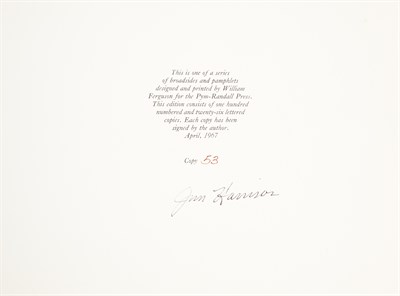 This is one of a series
of broadsides and pamphlets
designed and printed by William
Ferguson for the Pym-Randall Press.
This edition consists of one hundred
numbered and twenty-six lettered
copies. Each copy has been
signed by the author.
April, 1967
Copy 53
Jim Harrison